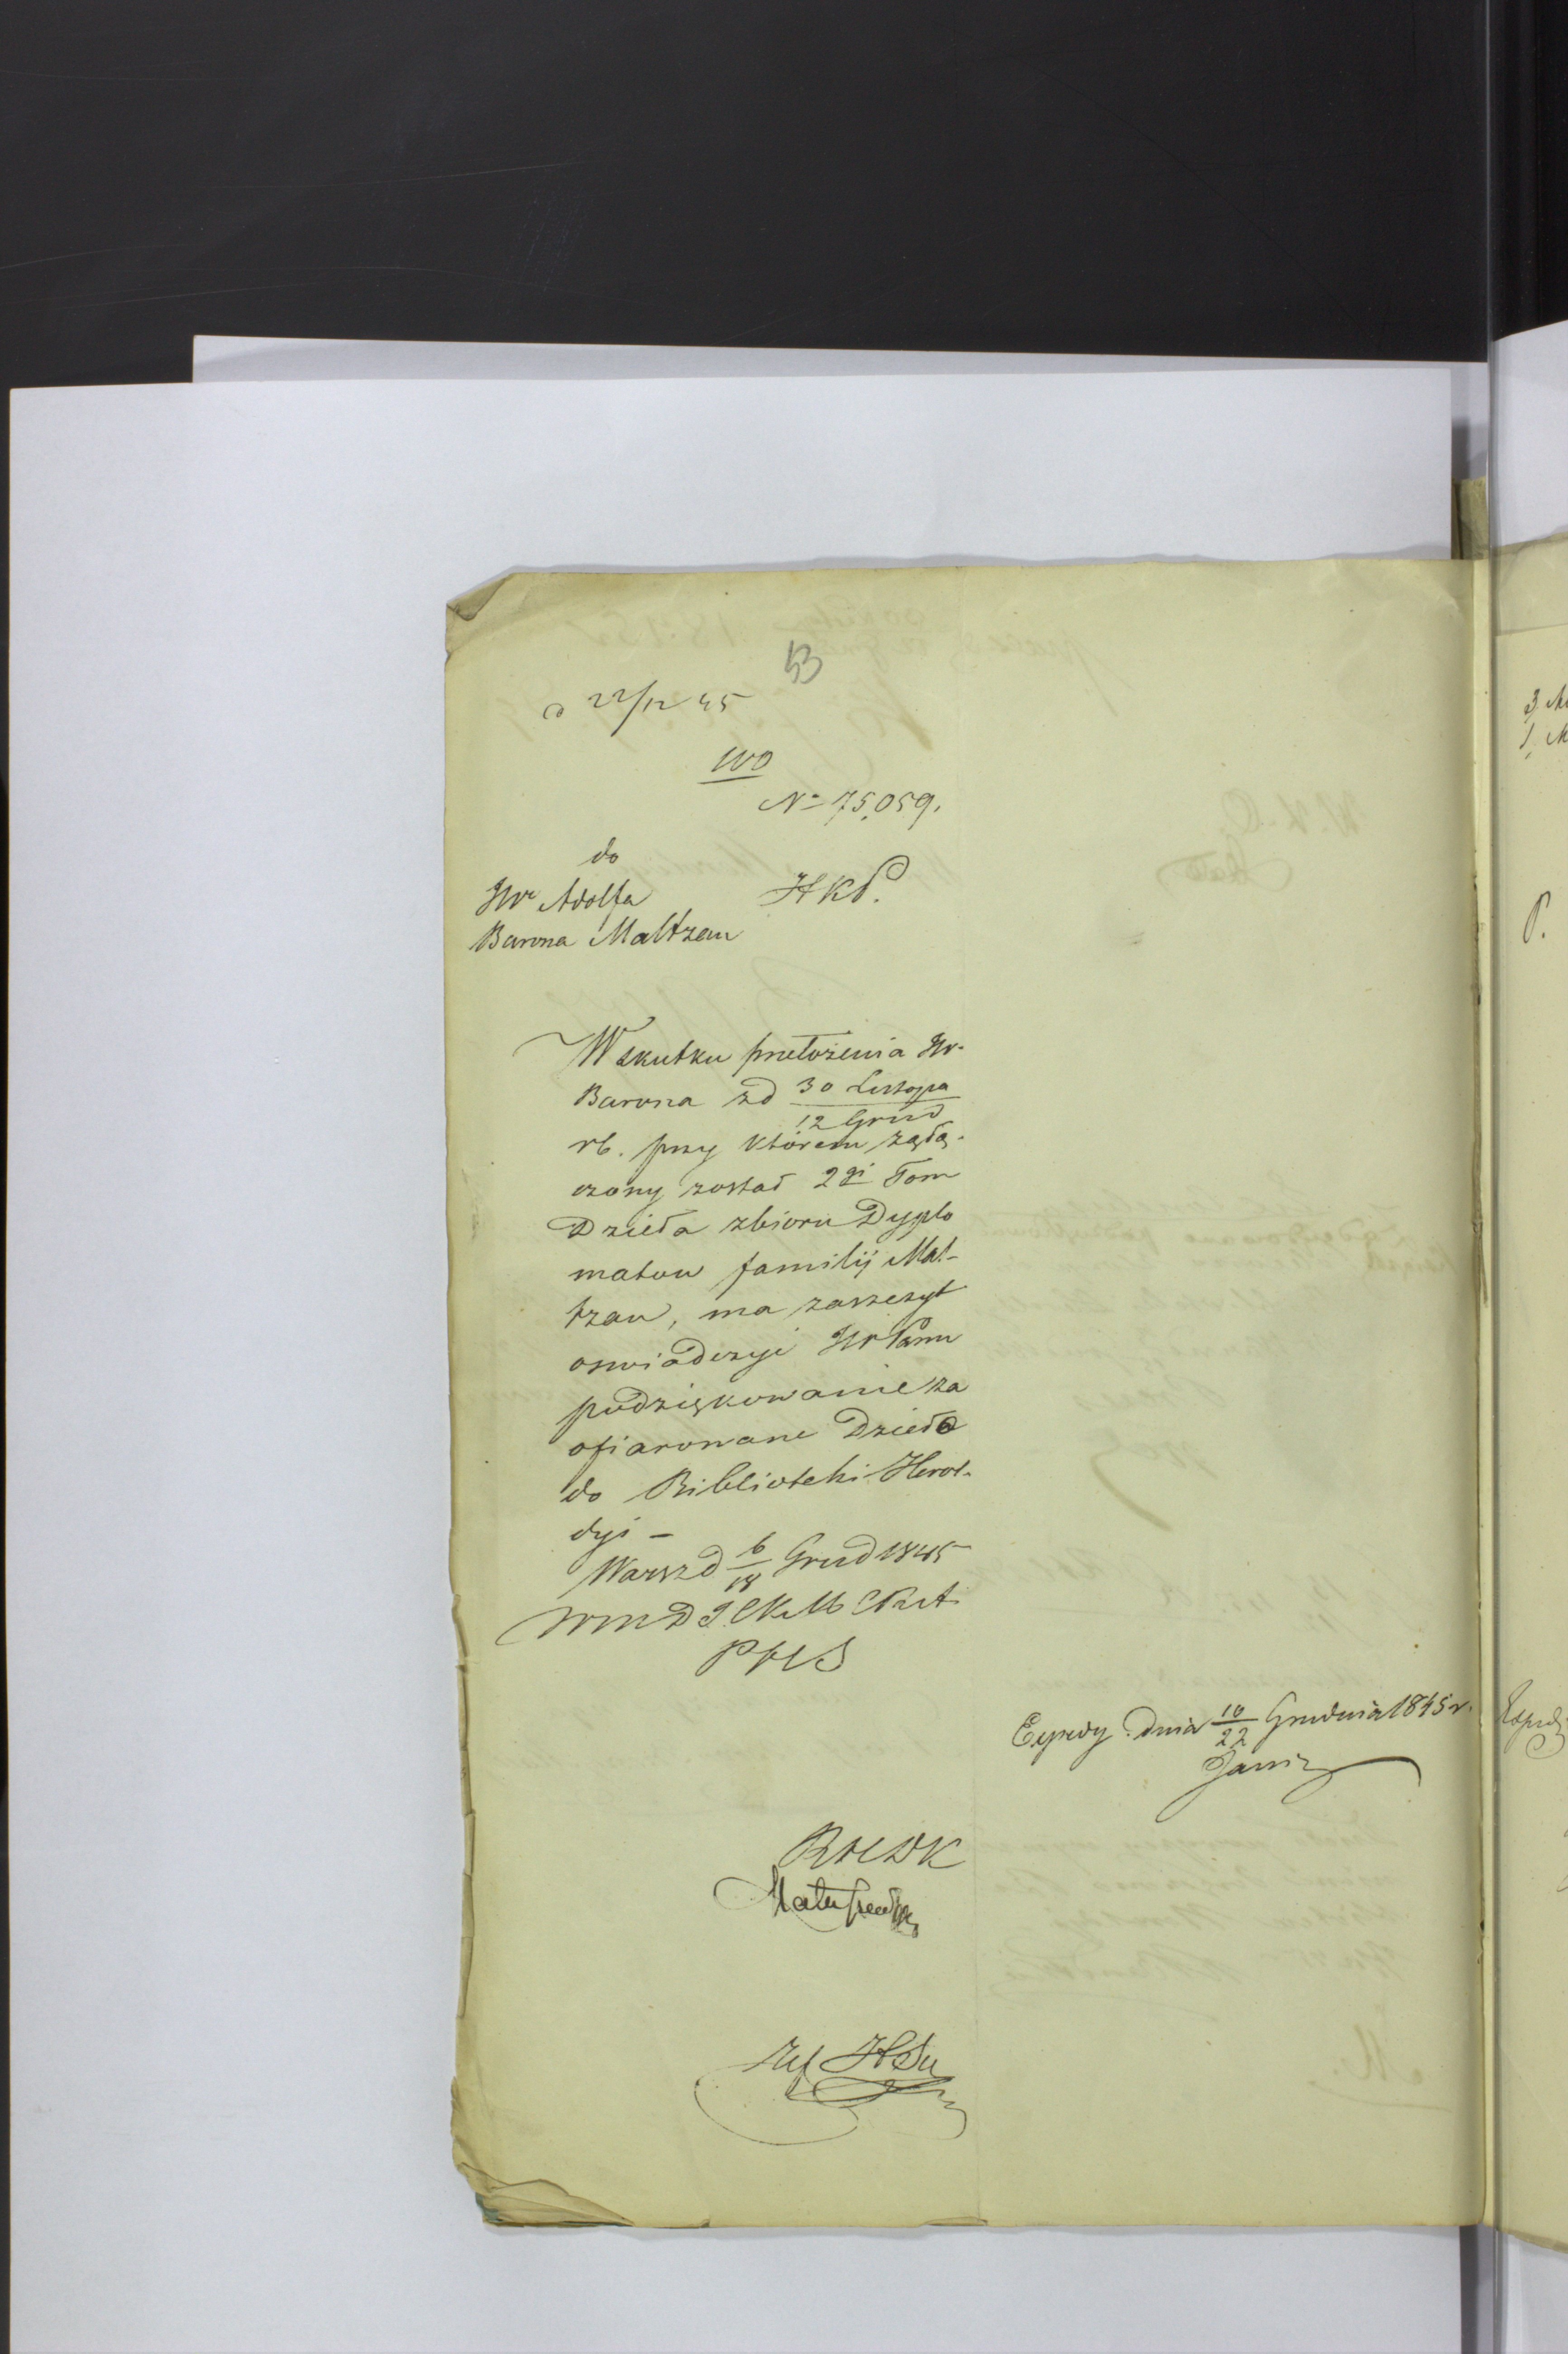 53
d 22/12 45
WO
No 75,059.
do
JW Adolfa
Barona Maltzan
HKP.
W skutku przełożenia JW
Barona z d 30 Listopa
12 Grud
rb. przy którem załą-
czony został 2gi Tom
Dzieła zbioru Dyplo
matow familij Mal-
tzan, ma zaszczyt
oswiadczyć JW Panu
podziękowanie za
ofiarowane Dzieło
do Biblioteki Herol-
dyi -
Warsz d 6/18 Grud 1845
Expedy. dnia 10/22 Grudnia 1845 r.